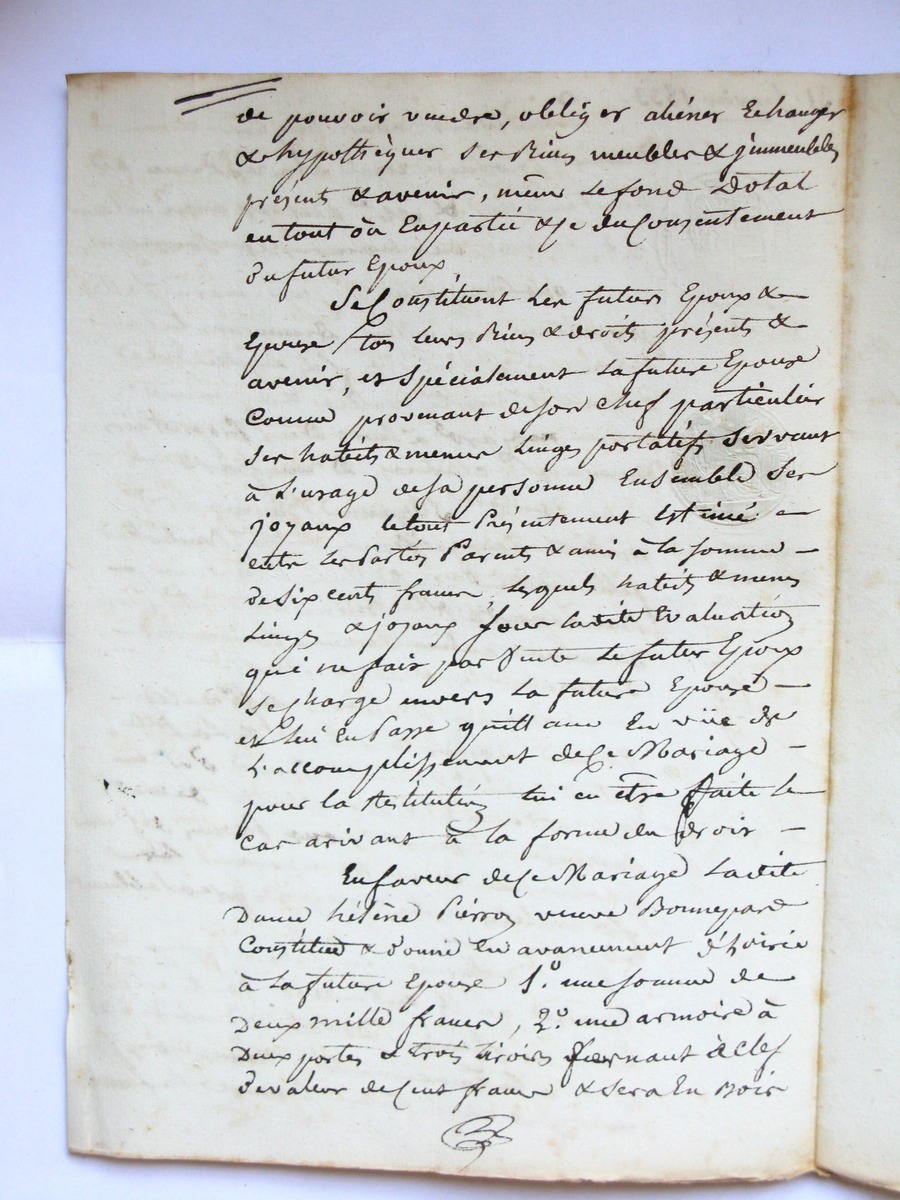 de pouvoir vendre, obliger aliéner Echanger
& hypothèquer ses Biens meubles & jmmeubles
présents & avenir, même le fond Dotal
en tout ou En partie & ce du Consentement
du futur Epoux,
Se Constituent les futurs Epoux &
Epouse tous leurs Biens & droits présents &
avenir, et spécialement la future Epouse
Comme provenant de son chef particulier
ses habits & menus Linges portatifs servant
à L'usage de sa personne Ensemble ses
joyaux le tout Présentement Estimé
entre les Parties Parents & amis à la somme
de six cents francs, lesquels habits & menus
Linges & joyaux sous ladite Evaluation
qui ne fait pas Vente le futur Epoux
se charge envers la future Epouse
et lui En Passe quittance En vüe de
L'accomplissement de Ce Mariage
pour la Restitution lui en être faite le
cas arivant à la forme du droit
En faveur de Ce Mariage Ladite
Dame hélène Pierron veuve Bonnepard
Constitue & donne En avancement d'hoirie
à la future Epouse 1.o une somme de
Deux mille francs, 2.o une armoire à
Deux portes & trois tiroirs fermant à clef
de valeur de Cent francs & sera En Bois